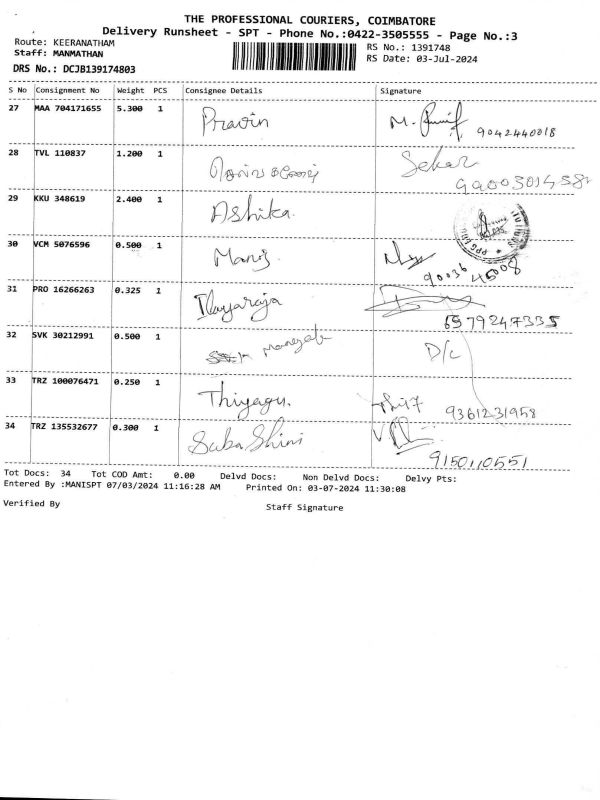 THE PROFESSIONAL COURIERS, COIMBATORE
Delivery Runsheet - SPT - Phone No.:0422-3505555 - Page No.:3
Route: KEERANATHAM
Staff: MANMATHAN
RS No.: 1391748
RS Date: 03-Jul-2024
DRS No.: DCJB139174803
S No Consignment No Weight PCS Consignee Details Signature
27 MAA 704171655 5.300 1 Pravin M.
9042440018
28 TVL 110837 1.200 1 Sekar
9900301458
29 KKU 348619 2.400 1 Ashika.
30 VCM 5076596 0.500 1 Manoj
90036 45008
31 PRO 16266263 0.325 1 Ilayaraja
6379247335
32 SVK 30212991 0.500 1 D/C
33 TRZ 100076471 0.250 1 Thiyagu.
9361231958
34 TRZ 135532677 0.300 1 Suba Shini
9150110551
Tot Docs: 34 Tot COD Amt: 0.00 Delvd Docs: Non Delvd Docs: Delvy Pts:
Entered By :MANISPT 07/03/2024 11:16:28 AM Printed On: 03-07-2024 11:30:08
Verified By Staff Signature